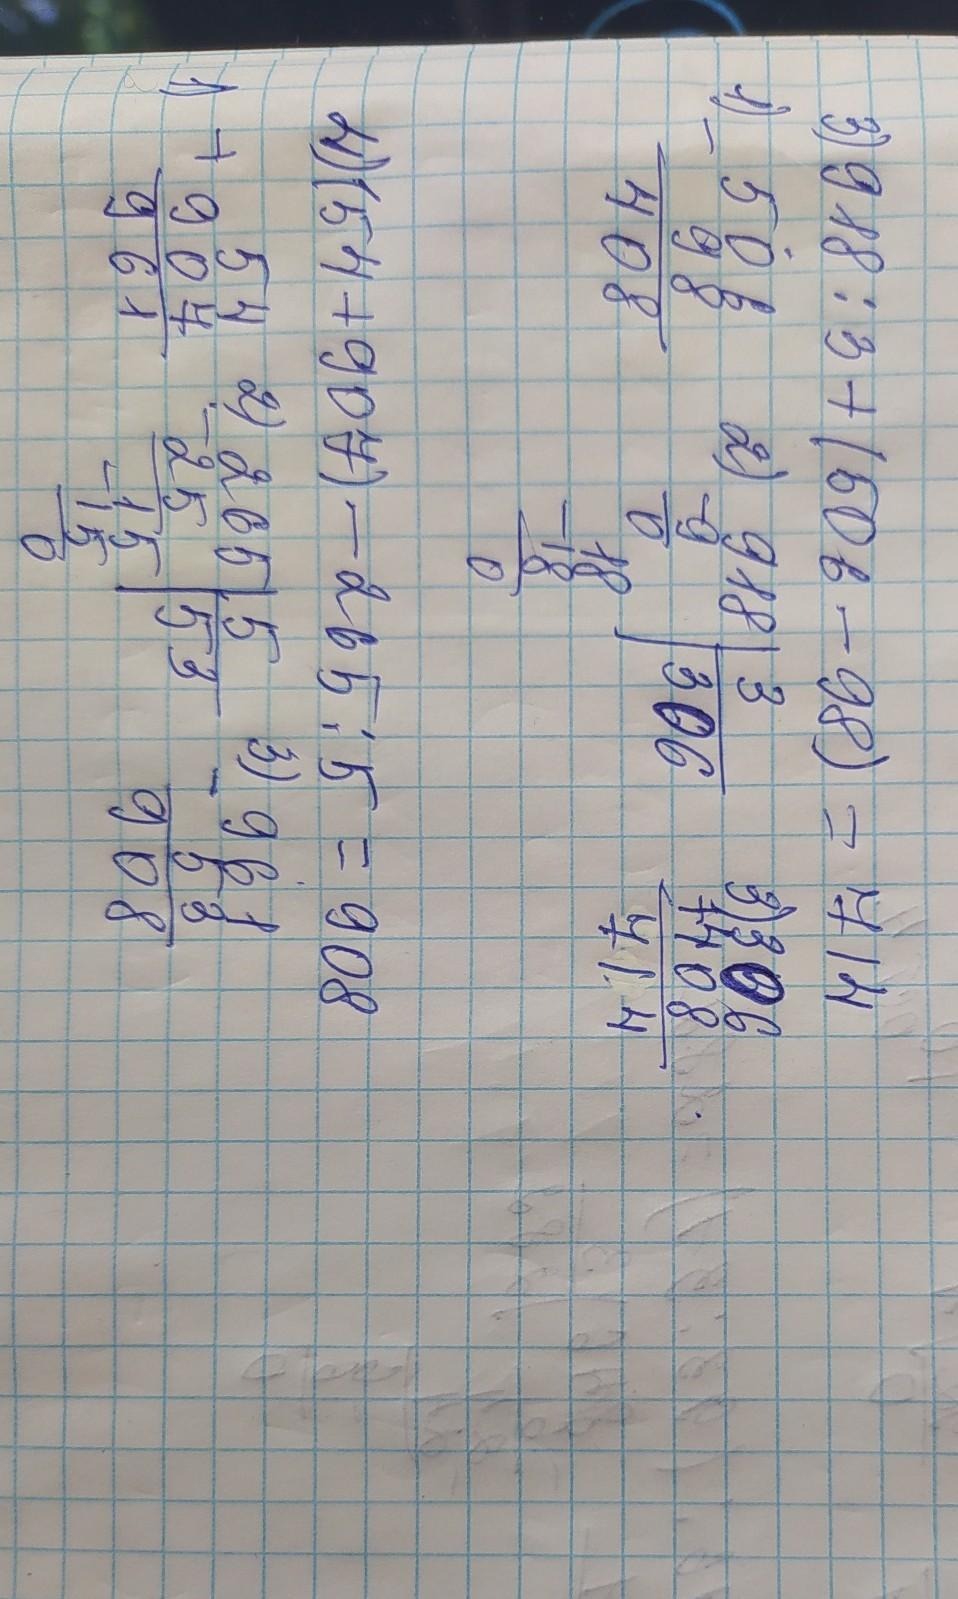 3) 918 : 3 + (606 - 98) = 714
1) - 506
98
408
2) 918 | 3
- 9 | 306
0
18
- 18
0
3) 306
+ 408
714
4) (54 + 907) - 265 : 5 = 908
1) + 54
907
961
2) - 265 | 5
25 | 53
- 15
15
0
3) - 961
53
908